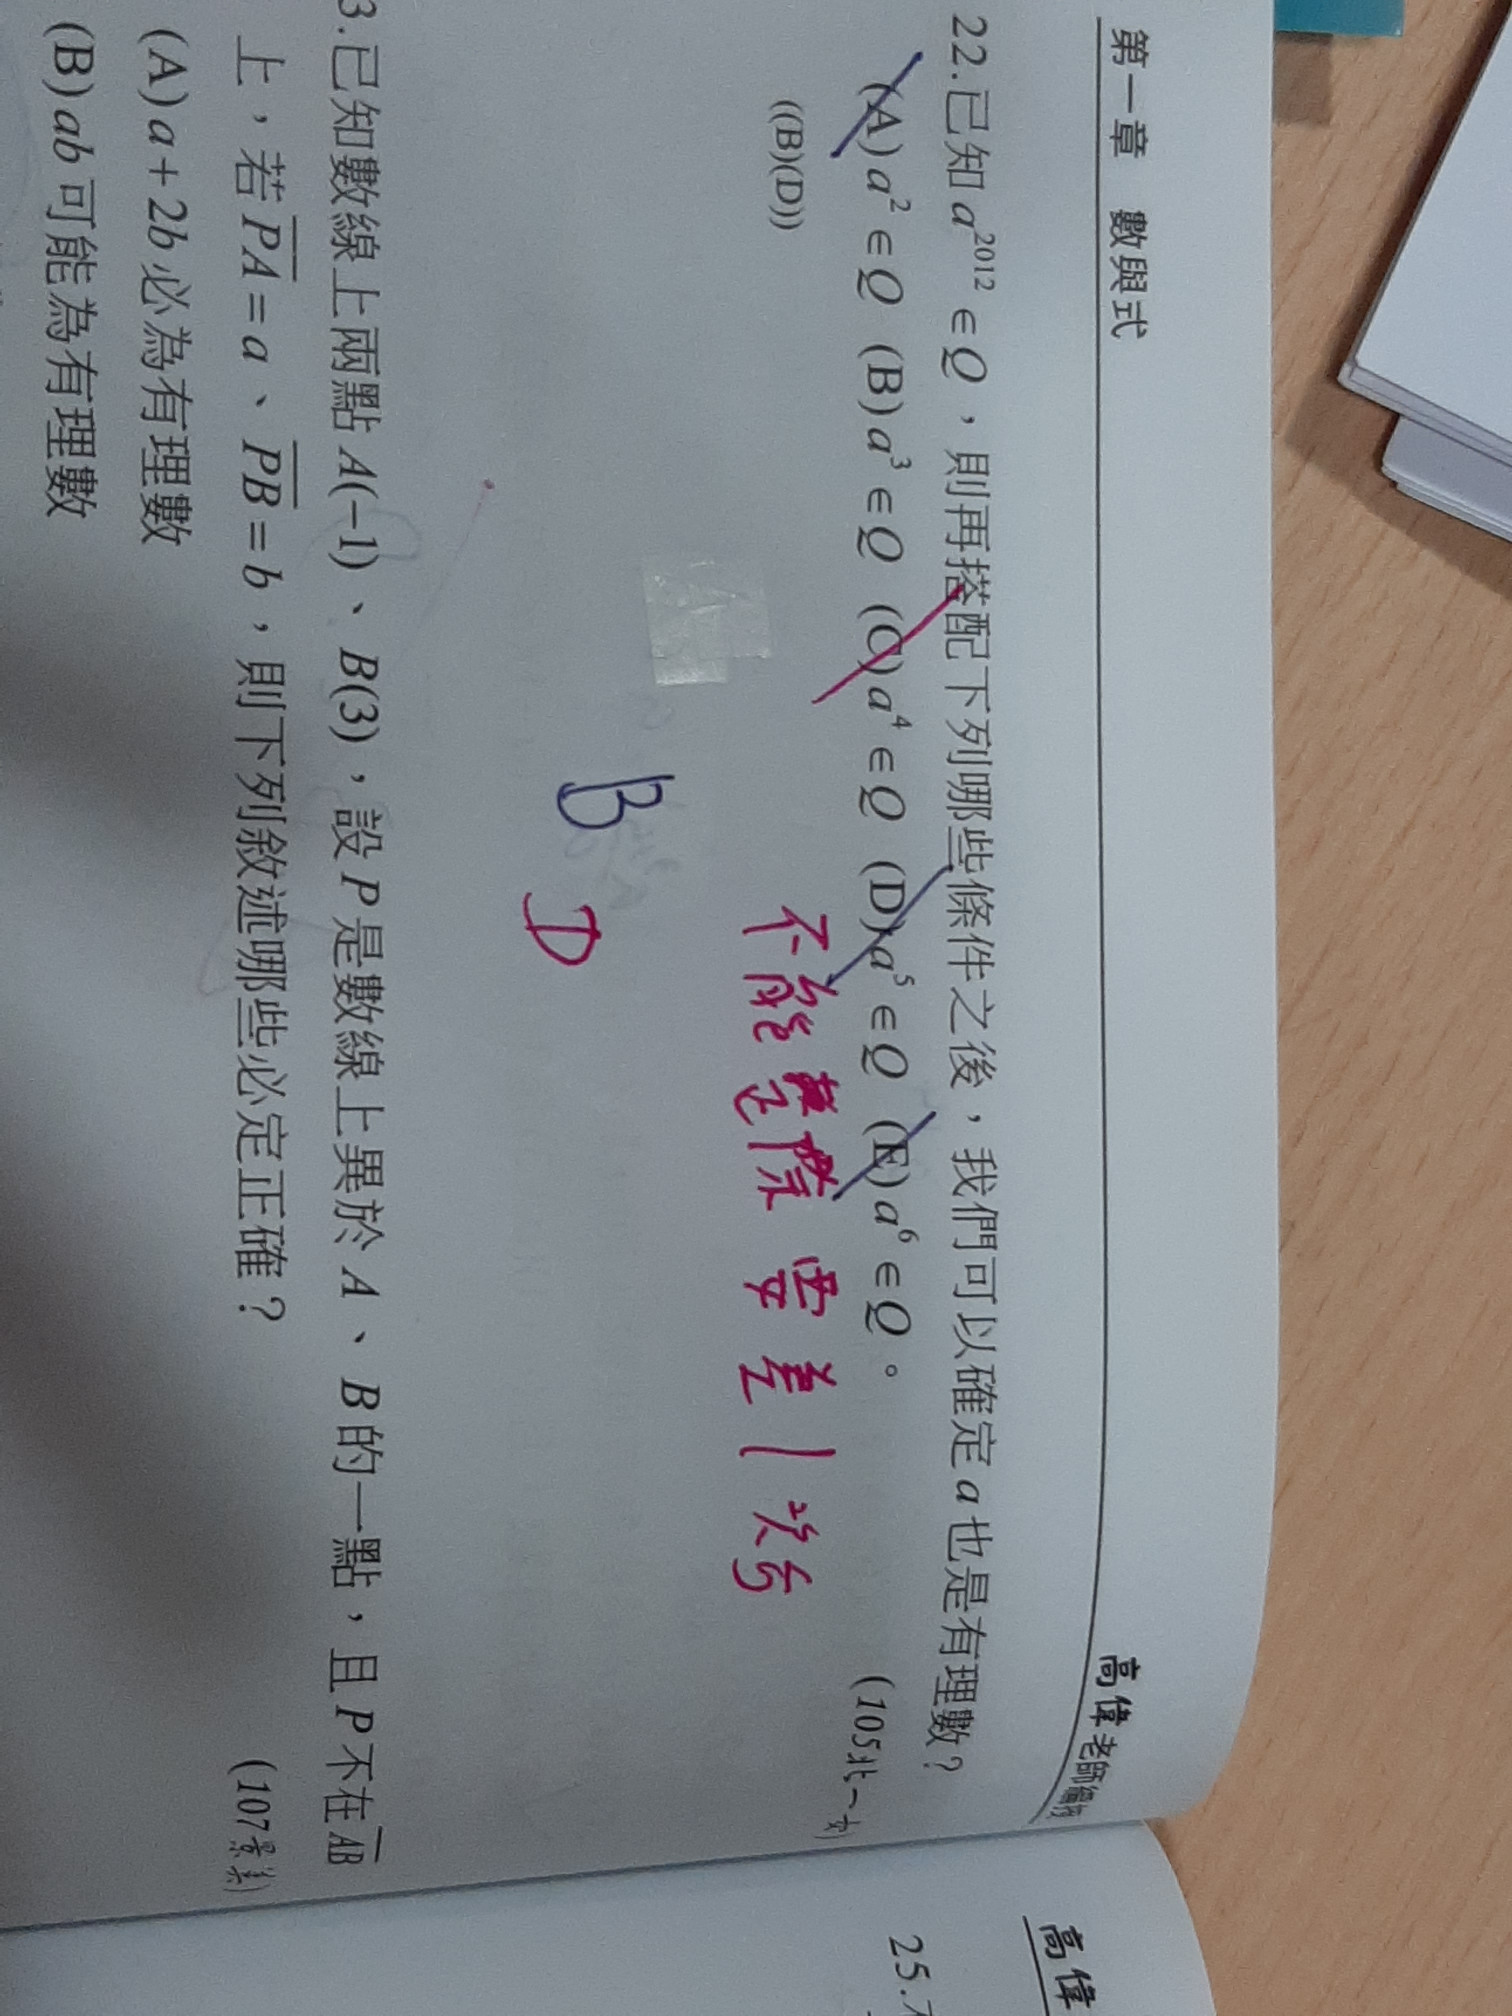 第一章 數與式
高偉老師編授
22.已知a^2012∈Q,則再搭配下列哪些條件之後,我們可以確定a也是有理數?
(A)a²∈Q (B)a³∈Q (C)a⁴∈Q (D)a⁵∈Q (E)a⁶∈Q。
(105北一女)
((B)(D))
不能整除 要差1次方
B
D
3.已知數線上兩點A(−1)、B(3),設P是數線上異於A、B的一點,且P不在AB
上,若PA=a、PB=b,則下列敘述哪些必定正確?
(107景美)
(A)a+2b必為有理數
(B)ab可能為有理數
高偉
25.